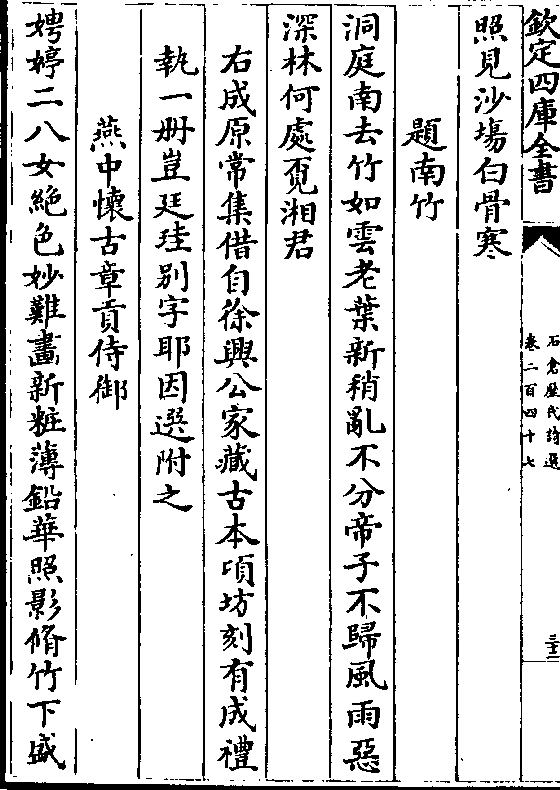 欽定四庫全書
石倉歷代詩選
卷二百四十七
三十二
照見沙場白骨寒
題南竹
洞庭南去竹如雲老葉新稍亂不分帝子不歸風雨惡
深林何處覔湘君
右成原常集借自徐興公家藏古本頃坊刻有成禮
執一册豈廷珪别字耶因選附之
燕中懷古章貢侍御
娉婷二八女絶色妙難畫新粧薄鉛華照影脩竹下盛